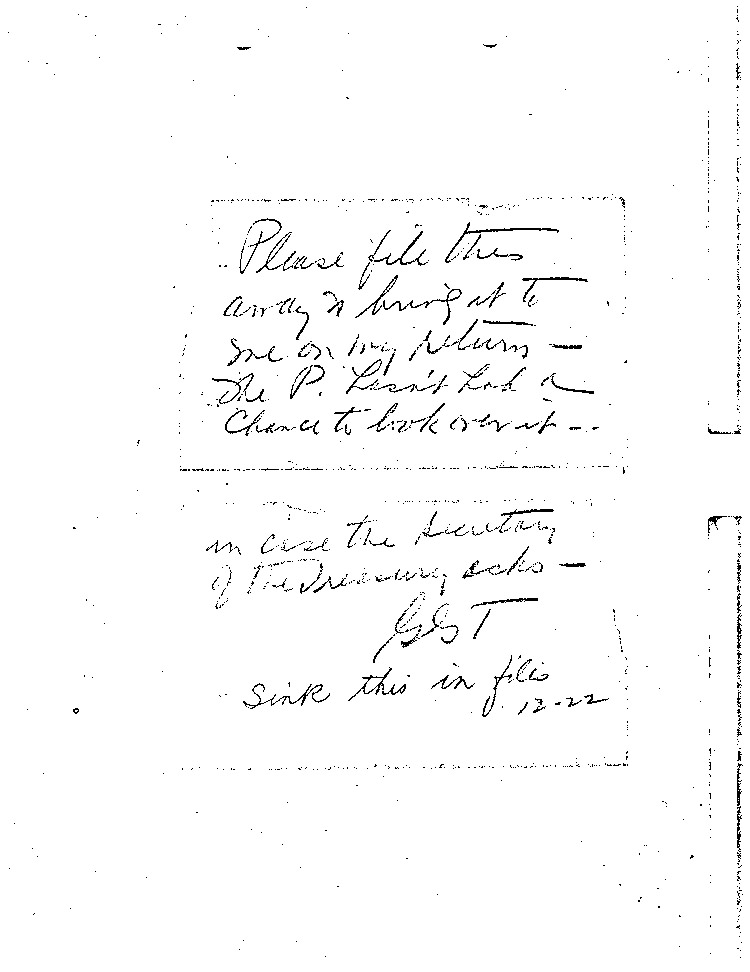 Please file this
away & bring it to
me on my return —
The P. hasn't had a
chance to look over it --
in case the Secretary
of the Treasury asks —
GGT
Sink this in files
12-22